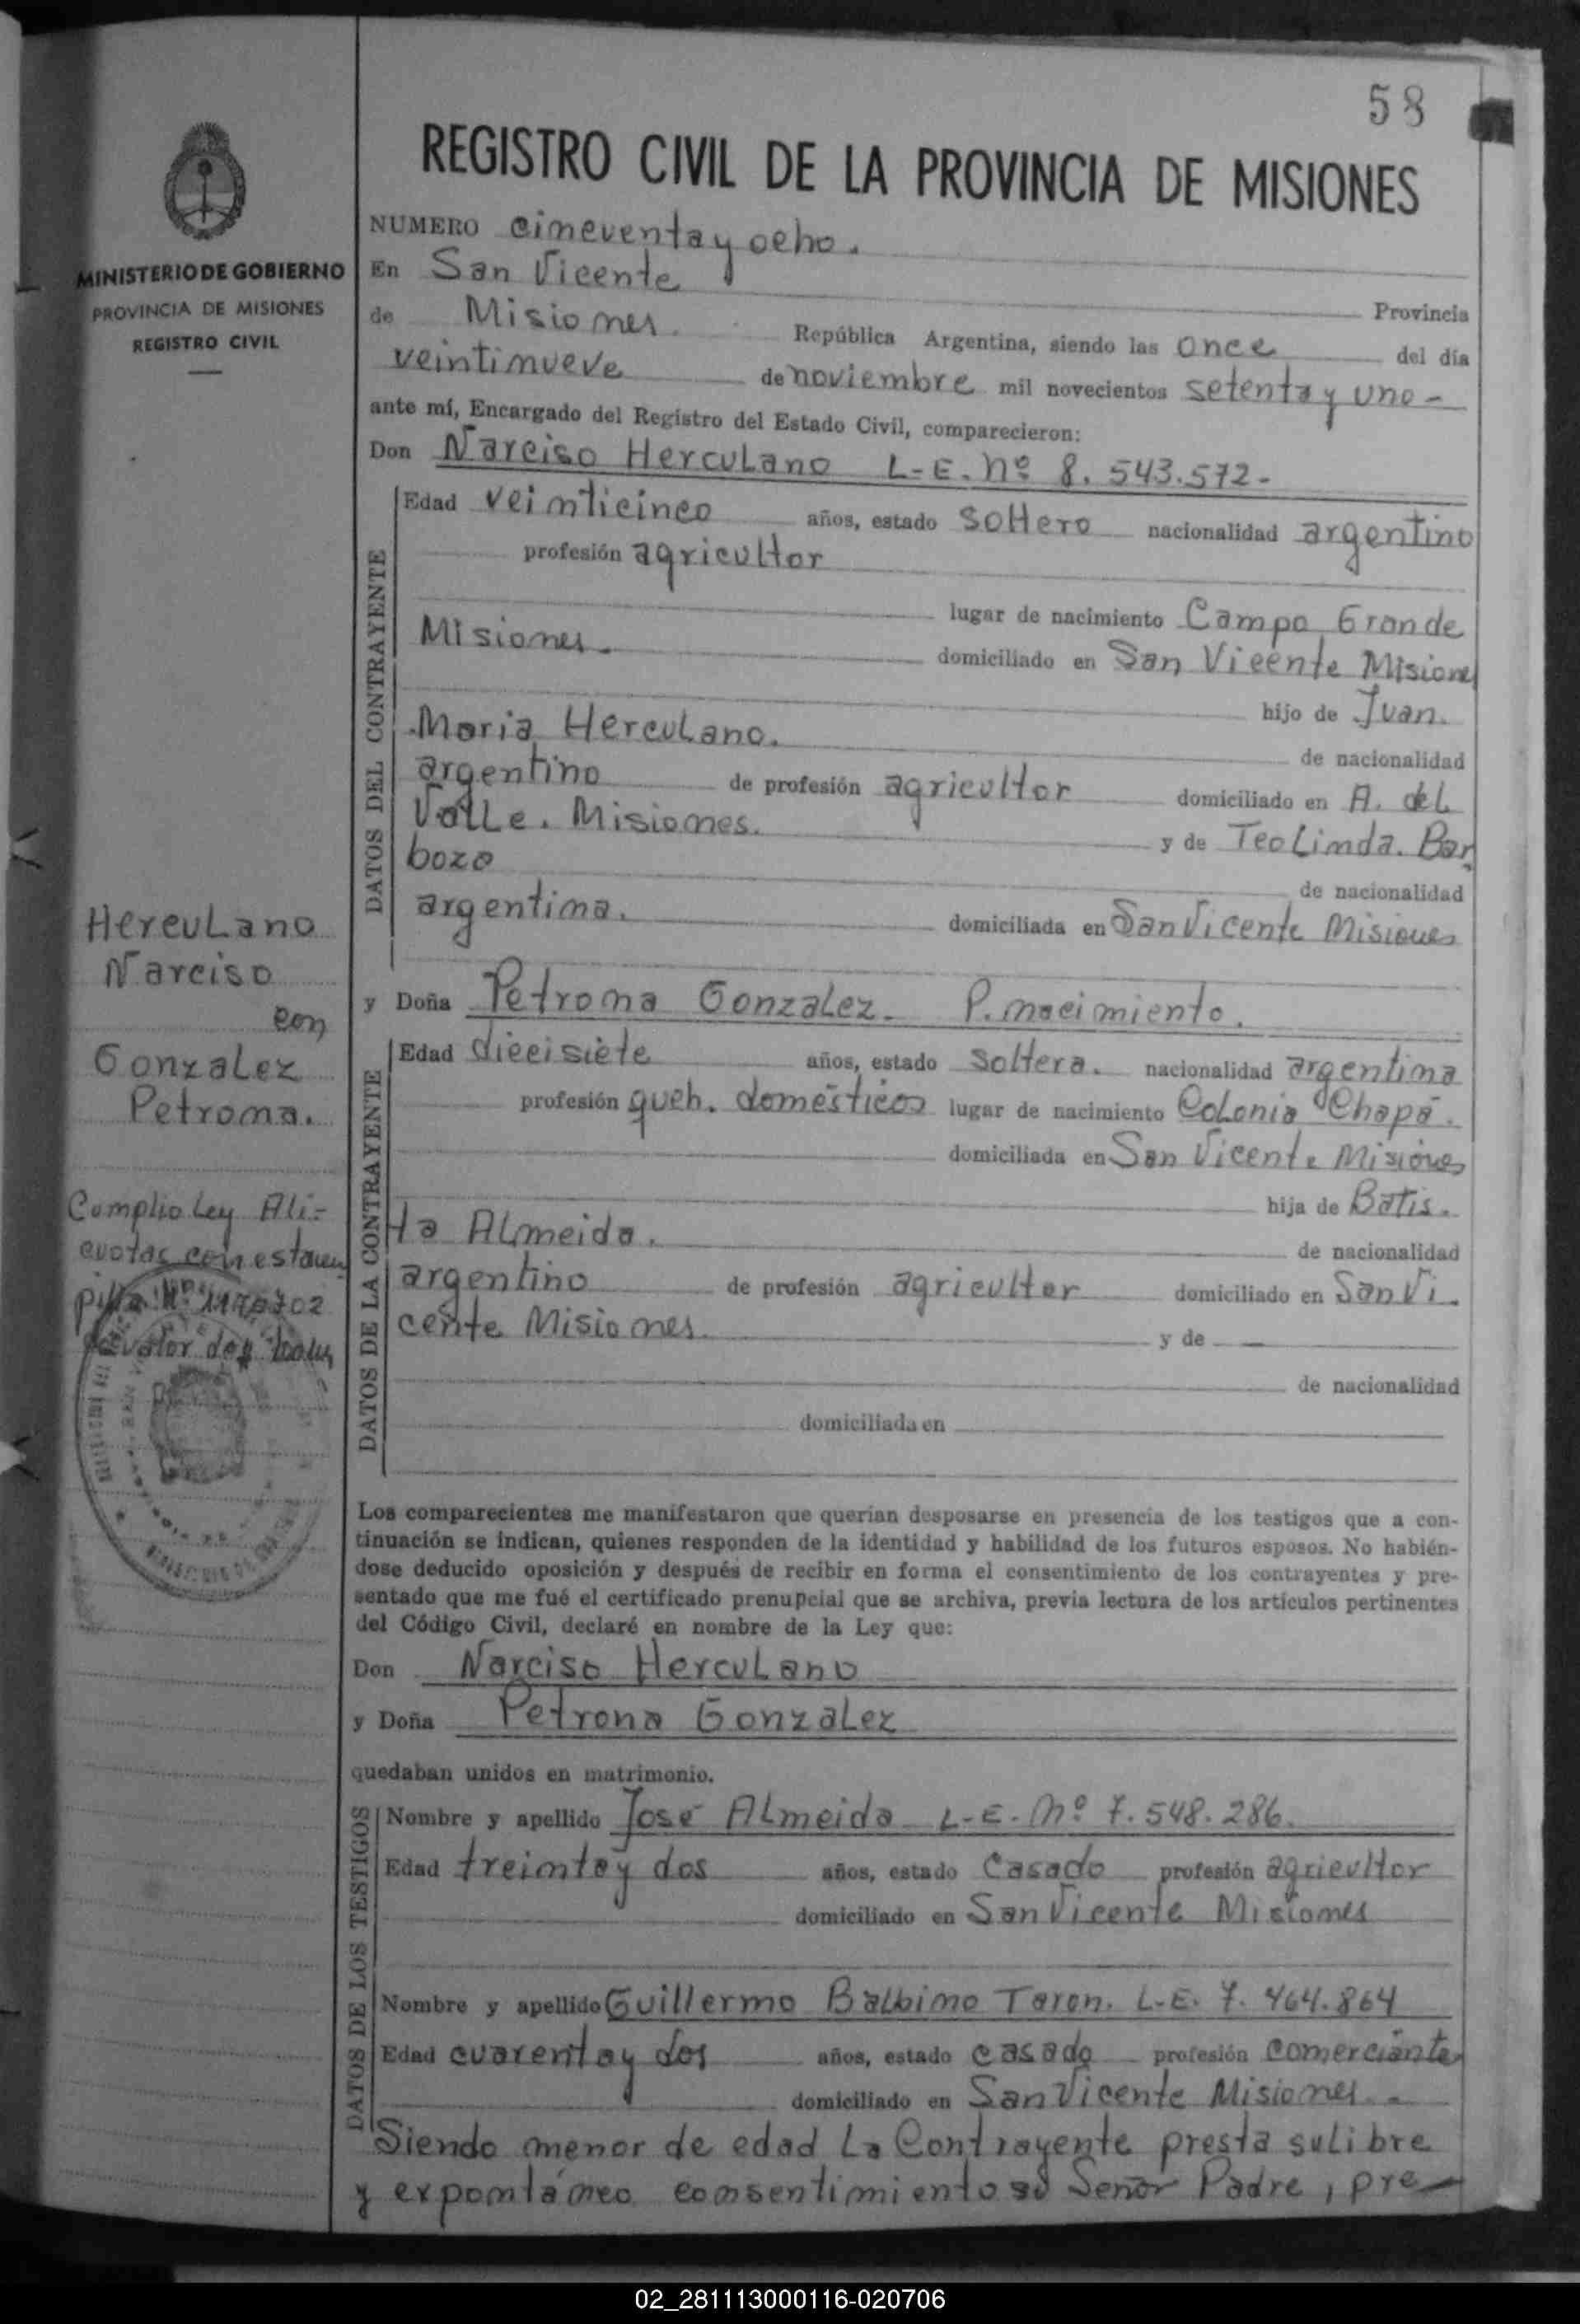 58
REGISTRO CIVIL DE LA PROVINCIA DE MISIONES
MINISTERIO DE GOBIERNO
PROVINCIA DE MISIONES
REGISTRO CIVIL
NUMERO cincuenta y ocho.
En San Vicente
Provincia
de Misiones. República Argentina, siendo las once del día
veintinueve de noviembre mil novecientos setenta y uno-
ante mí, Encargado del Registro del Estado Civil, comparecieron:
Don Narciso Herculano L-E. Nº 8.543.572-
DATOS DEL CONTRAYENTE
Edad veinticinco años, estado soltero nacionalidad argentino
profesión agricultor
lugar de nacimiento Campo Grande
Misiones. domiciliado en San Vicente Misiones
hijo de Juan.
Maria Herculano. de nacionalidad
argentino de profesión agricultor domiciliado en A. del
Valle. Misiones. y de Teolinda. Bar
bozo de nacionalidad
argentina. domiciliada en San Vicente Misiones
y Doña Petrona Gonzalez. P. nacimiento.
DATOS DE LA CONTRAYENTE
Edad diecisiete años, estado soltera. nacionalidad argentina
profesión queh. domésticos lugar de nacimiento Colonia Chapá.
domiciliada en San Vicente Misiones
hija de Batis.
ta Almeida. de nacionalidad
argentino de profesión agricultor domiciliado en San Vi.
cente Misiones. y de
de nacionalidad
domiciliada en
Herculano
Narciso
con
Gonzalez
Petrona.
Cumplio Ley Ali-
cuotas con estam
pilla Nº
valor dos
Los comparecientes me manifestaron que querían desposarse en presencia de los testigos que a con-
tinuación se indican, quienes responden de la identidad y habilidad de los futuros esposos. No habién-
dose deducido oposición y después de recibir en forma el consentimiento de los contrayentes y pre-
sentado que me fué el certificado prenupcial que se archiva, previa lectura de los artículos pertinentes
del Código Civil, declaré en nombre de la Ley que:
Don Narciso Herculano
y Doña Petrona Gonzalez
quedaban unidos en matrimonio.
DATOS DE LOS TESTIGOS
Nombre y apellido José Almeida L-E. Nº 7.548.286.
Edad treinta y dos años, estado casado profesión agricultor
domiciliado en San Vicente Misiones
Nombre y apellido Guillermo Balbino Taron. L-E. 7.464.864
Edad cuarenta y dos años, estado casado profesión comerciante
domiciliado en San Vicente Misiones.-
Siendo menor de edad la contrayente presta su libre
y expontáneo consentimiento su Señor Padre, pre-
02_281113000116-020706